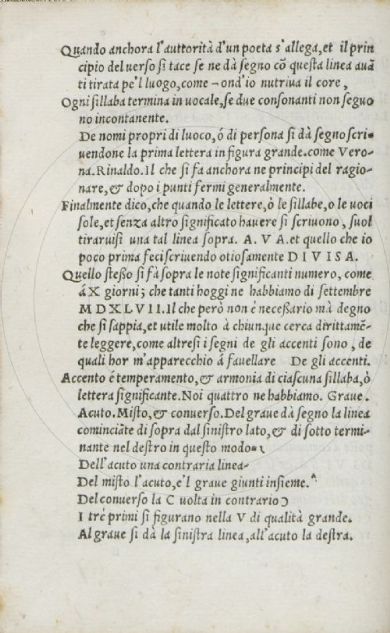 Quando anchora l'auttorità d'un poeta s'allega, et il prin
cipio del uerso si tace se ne dà segno cõ questa linea auã
ti tirata pe'l luogo, come – ond'io nutriua il core,
Ogni sillaba termina in uocale, se due consonanti non seguo
no incontanente.
De nomi propri di luoco, ó di persona si dà segno scri-
uendone la prima lettera in figura grande. come Vero-
na. Rinaldo. Il che si fa anchora ne principi del ragio-
nare, & dopo i punti fermi generalmente.
Finalmente dico, che quando le lettere, ò le sillabe, o le uoci
sole, et senza altro significato hauere si scriuono, suol
tiraruisi una tal linea sopra. A. V A. et quello che io
poco prima feci scriuendo otiosamente D I V I S A.
Quello stesso si fà sopra le note significanti numero, come
á X giorni; che tanti hoggi ne habbiamo di settembre
M D X L V I I. Il che però non é necessario mà degno
che si sappia, et utile molto à chiunque cerca dirittamẽ-
te leggere, come altresi i segni de gli accenti sono, de
quali hor m'apparecchio á fauellare De gli accenti.
Accento é temperamento, & armonia di ciascuna sillaba, ò
lettera significante. Noi quattro ne habbiamo. Graue.
Acuto. Misto, & conuerso. Del graue dà segno la linea
cominciãte di sopra dal sinistro lato, & di sotto termi-
nante nel destro in questo modo \
Dell'acuto una contraria linea
Del misto l'acuto, e'l graue giunti insieme. ^
Del conuerso la C uolta in contrario Ɔ
I tré primi si figurano nella V di qualità grande.
Al graue si dà la sinistra linea, all'acuto la destra.